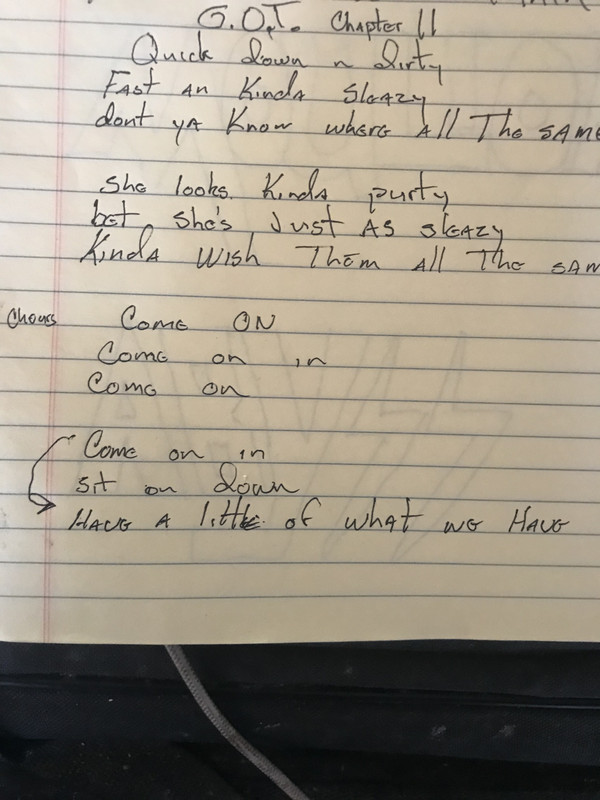 G.O.T. Chapter 11
Quick down n dirty
Fast an Kinda Sleazy
dont ya Know where All The SAME
She looks Kinda purty
bet she's Just As sleazy
Kinda Wish Them All The SAM
Chours Come ON
Come on in
Come on
Come on in
sit on down
HAVE A little of what we HAVE